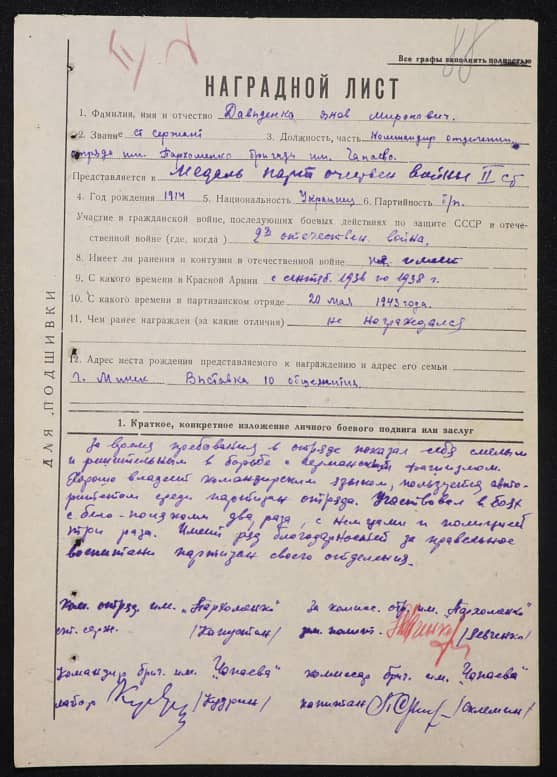 Все графы заполнять полностью
НАГРАДНОЙ ЛИСТ
1. Фамилия, имя и отчество Давыденко Миронович.
2. Звание ст сержант 3. Должность, часть Командир отделения
отряда им. Пархоменко бригады им. Чапаева.
Представляется к Медаль парт отечествен войны II ст
4. Год рождения 1914 5. Национальность Украинец 6. Партийность б/п.
Участие в гражданской войне, последующих боевых действиях по защите СССР и отече-
ственной войне (где, когда) отечествен. война,
8. Имеет ли ранения и контузии в отечественной войне не имеет
9. С какого времени в Красной Армии с сентяб. 1936 по 1938 г.
10. С какого времени в партизанском отряде 20 мая 1943 года.
11. Чем ранее награжден (за какие отличия) не награждался
12. Адрес места рождения представляемого к награждению и адрес его семьи
г. Минск Выставка 10 общежитие
ДЛЯ ПОДШИВКИ
1. Краткое, конкретное изложение личного боевого подвига или заслуг
За время пребывания в отряде показал себя смелым
и решительным в борьбе с германским фашизмом.
Хорошо владеет командирским языком, пользуется авто-
ритетом среди партизан отряда. Участвовал в боях
с бело-поляками два раза, с немцами и полицией
три раза. Имеет ряд благодарностей за правельное
воспитани партизан своего отделения.
Ком. отряда им. „Пархоменко" За комис. отр. им. „Пархоменко"
ст. серж. /Капустин/ /Левченко/
Командир бриг. им. „Чапаева" комиссар бриг. им. „Чапаева"
майор /Кудрин/ капитан